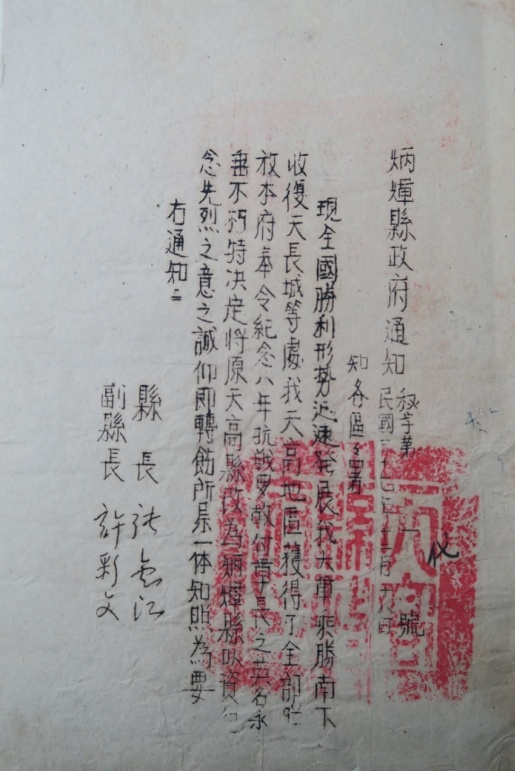 炳輝縣政府通知 秘字第 號
民國 年 月 日
知各區署
現全國勝利形势迅速發展我大軍乘勝南下
收復天長城等處我天高地區獲得了全部
放本府奉令紀念八年抗戰 之英名永
垂不朽特決定將原天高縣改為炳輝縣以資紀
念先烈之意之誠仰即轉飭所屬一体知照為要
右通知
縣長 張
副縣長 許彩文